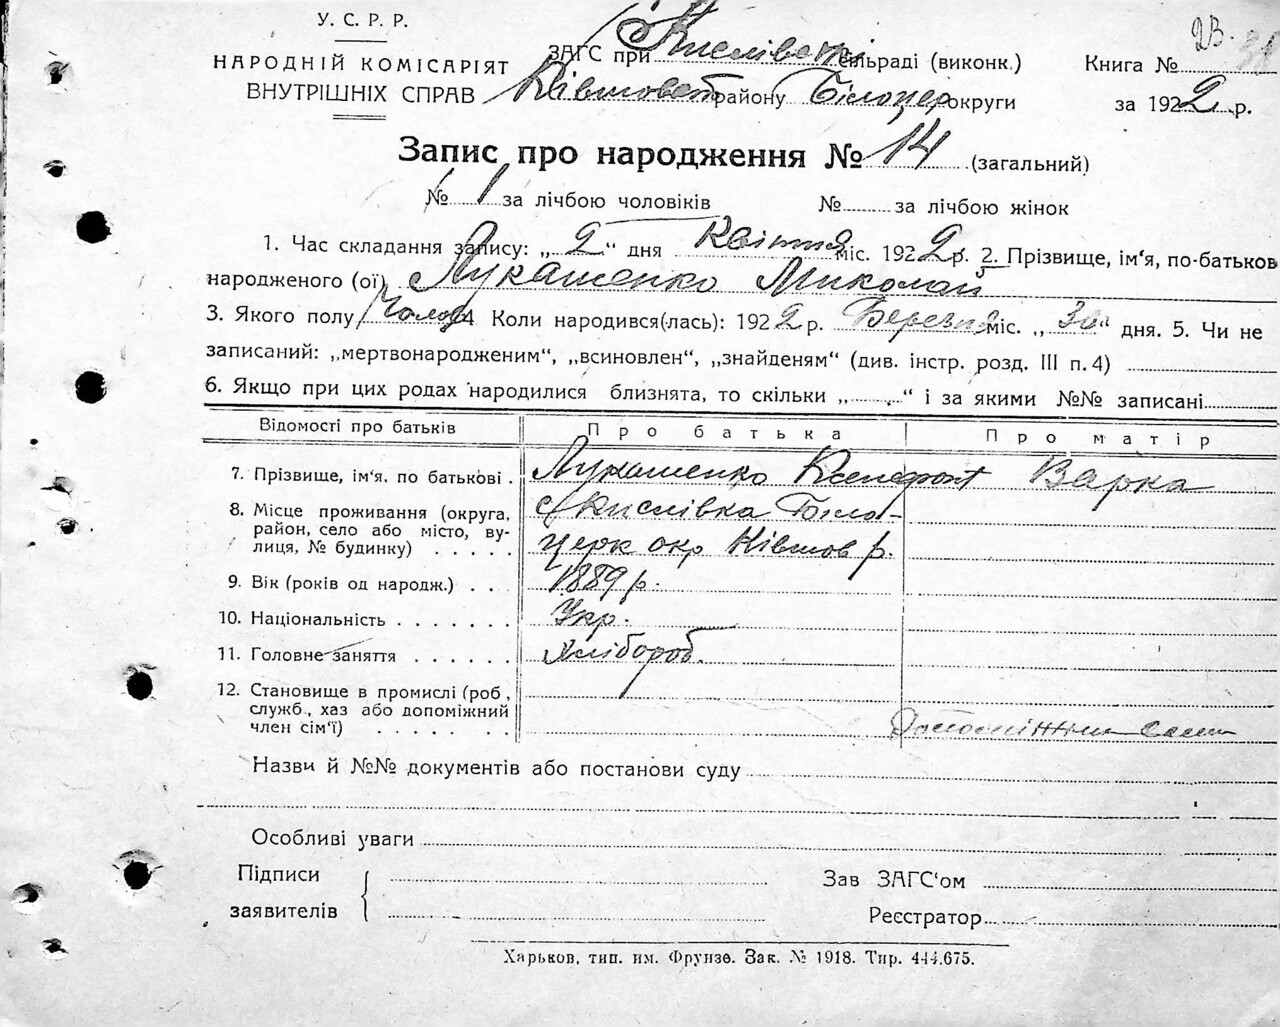 У. С. Р. Р.
НАРОДНІЙ КОМІСАРІЯТ
ВНУТРІШНІХ СПРАВ
ЗАГС при Кислівскі сільраді (виконк.)
Ківшоват району Білоцер округи
23.
Книга №
за 1922 р.
Запис про народження № 14 (загальний)
№ 1 за лічбою чоловіків №......... за лічбою жінок
1. Час складання запису: „ 2 “ дня Квітня міс. 1922 р. 2. Прізвище, ім‘я, по-батьков
народженого (ої) Лукашенко Миколай
3. Якого полу Чолов 4 Коли народився(лась): 1922 р. Березня міс. „ 30 “ дня. 5. Чи не
записаний: „мертвонародженим“, „всиновлен“, „знайденям“ (див. інстр. розд. III п. 4)
6. Якщо при цих родах народилися близнята, то скільки „.........“ і за якими №№ записані
Відомості про батьків Про батька Про матір
7. Прізвище, ім‘я, по батькові . Лукашенко Ксенофонт Варка
8. Місце проживання (округа, с Кислівка Біло-
район, село або місто, ву-
лиця, № будинку) . . . . . церк окр Ківшов р.
9. Вік (років од народж.) . . . 1889 р.
10. Національність . . . . . . . Укр.
11. Головне заняття . . . . . . Хлібороб.
12. Становище в промислі (роб.,
служб., хаз або допоміжний
член сім‘ї) . . . . . . Допоміжни
Назви й №№ документів або постанови суду
Особливі уваги
Підписи
заявителів
Зав ЗАГС‘ом
Реєстратор
Харьков, тип. им. Фрунзе. Зак. № 1918. Тир. 444.675.